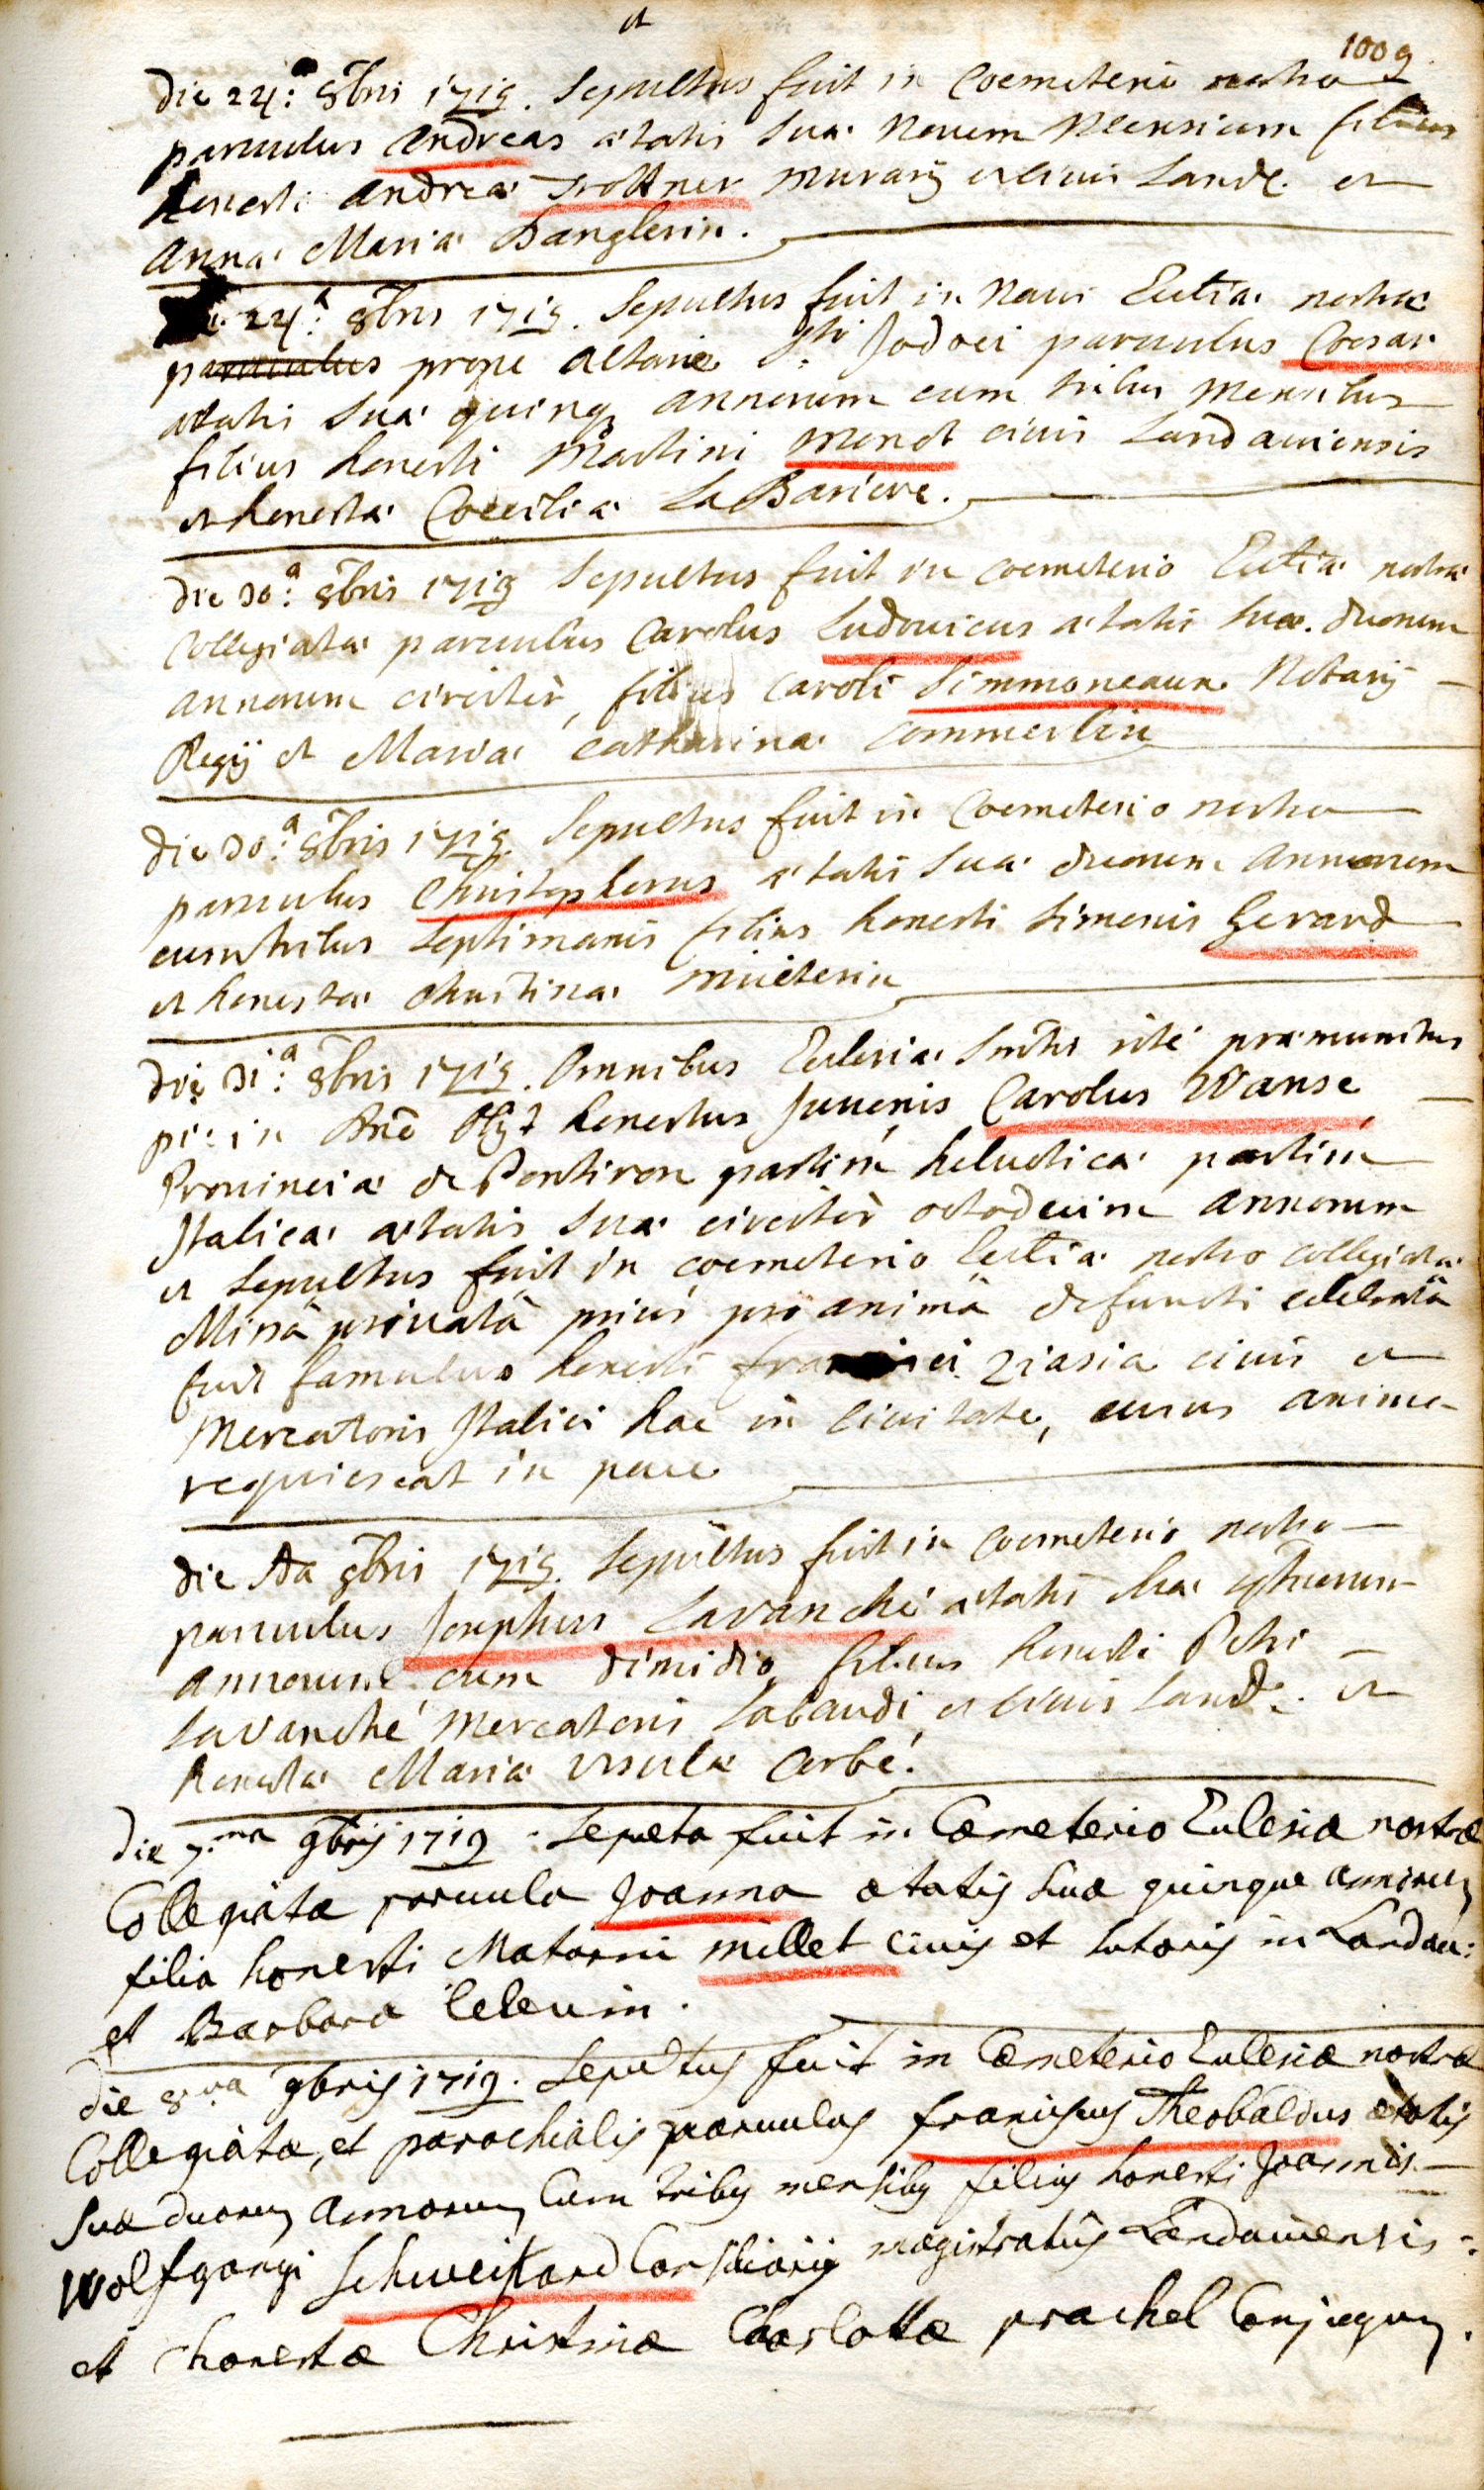 et
1009.
Die 24.ª 8bris 1719. Sepultus fuit in Coemeterio nostro
parvulus Andreas ætatis suæ novem Mensium filius
honesti Andreæ Trottner murarij et civis Land. et
Annæ Mariæ Danglerin.
24.ª 8bris 1719. Sepultus fuit in Navi Ecclīæ nostræ
parvulus prope altare Sti Jodoci parvulus Coesar
ætatis suæ quinq annorum cum tribus mensibus
filius honesti Martini Menot civis Landaviensis
et honestæ Coeciliæ La Bariere.
Die 30.ª 8bris 1719 Sepultus fuit in coemeterio Ecclīæ nostræ
Collegiatæ parvulus Carolus Ludovicus ætatis suæ duorum
annorum circiter, filius Caroli Simmoneaux Notarij
Regij et Mariæ Catharinæ Commerlin
Die 30.ª 8bris 1719 Sepultus fuit in Coemeterio nostro
parvulus Christophorus ætatis suæ duorum annorum
cum tribus septimanis filius honesti Simonis Gerard
et honestæ Christinæ
Die 31.ª 8bris 1719. Omnibus Ecclesiæ Smtis rité præmunitus
piè in Dnō Obijt honestus Juvenis Carolus Wanse
Provinciæ de Pontiron partim helveticæ partim
Italicæ ætatis suæ circiter octodecim annorum
et Sepultus fuit in coemeterio Ecclīæ nostro collegiatæ
Missâ privatâ priùs pro animâ defuncti celebratâ
fuit famulus honesti francisci Ziasia civis et
Mercatoris Italici hac in Civitate, cuius anima
requiescat in pace
Die 9bris 1719. Sepultus fuit in coemeterio nostro
parvulus Josephus Lavanché ætatis suæ
annorum cum dimidio, filius honesti Petri
Lavanché Mercatoris Sabaudi et civis Land. et
honestæ Mariæ Ursulæ Cerbé.
Die 7.ma 9bris 1719. Sepulta fuit in Cœmeterio Ecclesiæ nostræ
Collegiatæ parvula Joanna ætatis suæ quinque annorum
filia honesti Materni Millet civis et sutoris in Landau:
et Barbaræ
Die 8.va 9bris 1719. Sepultus fuit in Cœmeterio Ecclesiæ nostræ
Collegiatæ, et parochialis parvulus franciscus Theobaldus ætatis
suæ duorum annorum cum tribus mensibus filius honesti Joannis
Wolfgangi Schweikard Consiliarij magistratûs Landaviensis:
et honestæ Christinæ Charlottæ prachel Conjugum.